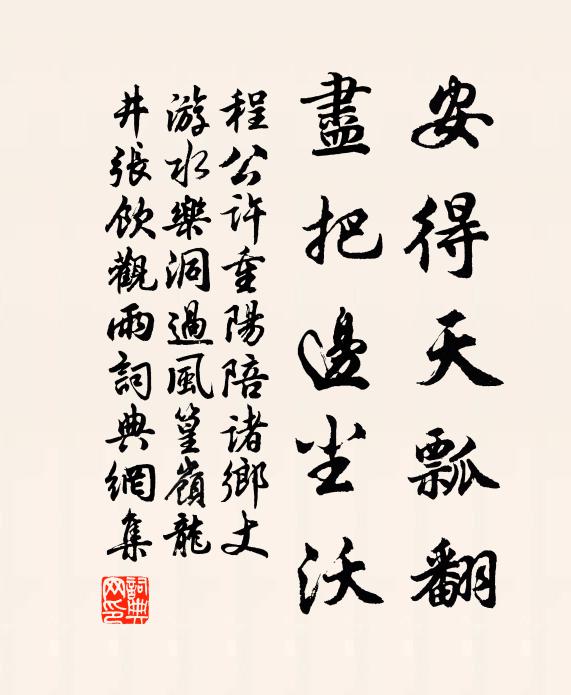 安得天瓢翻
盡把邊塵沃
程公許重陽陪諸鄉丈
游水樂洞過風篁嶺龍
井張飲觀雨詞典網集
詞典
网印